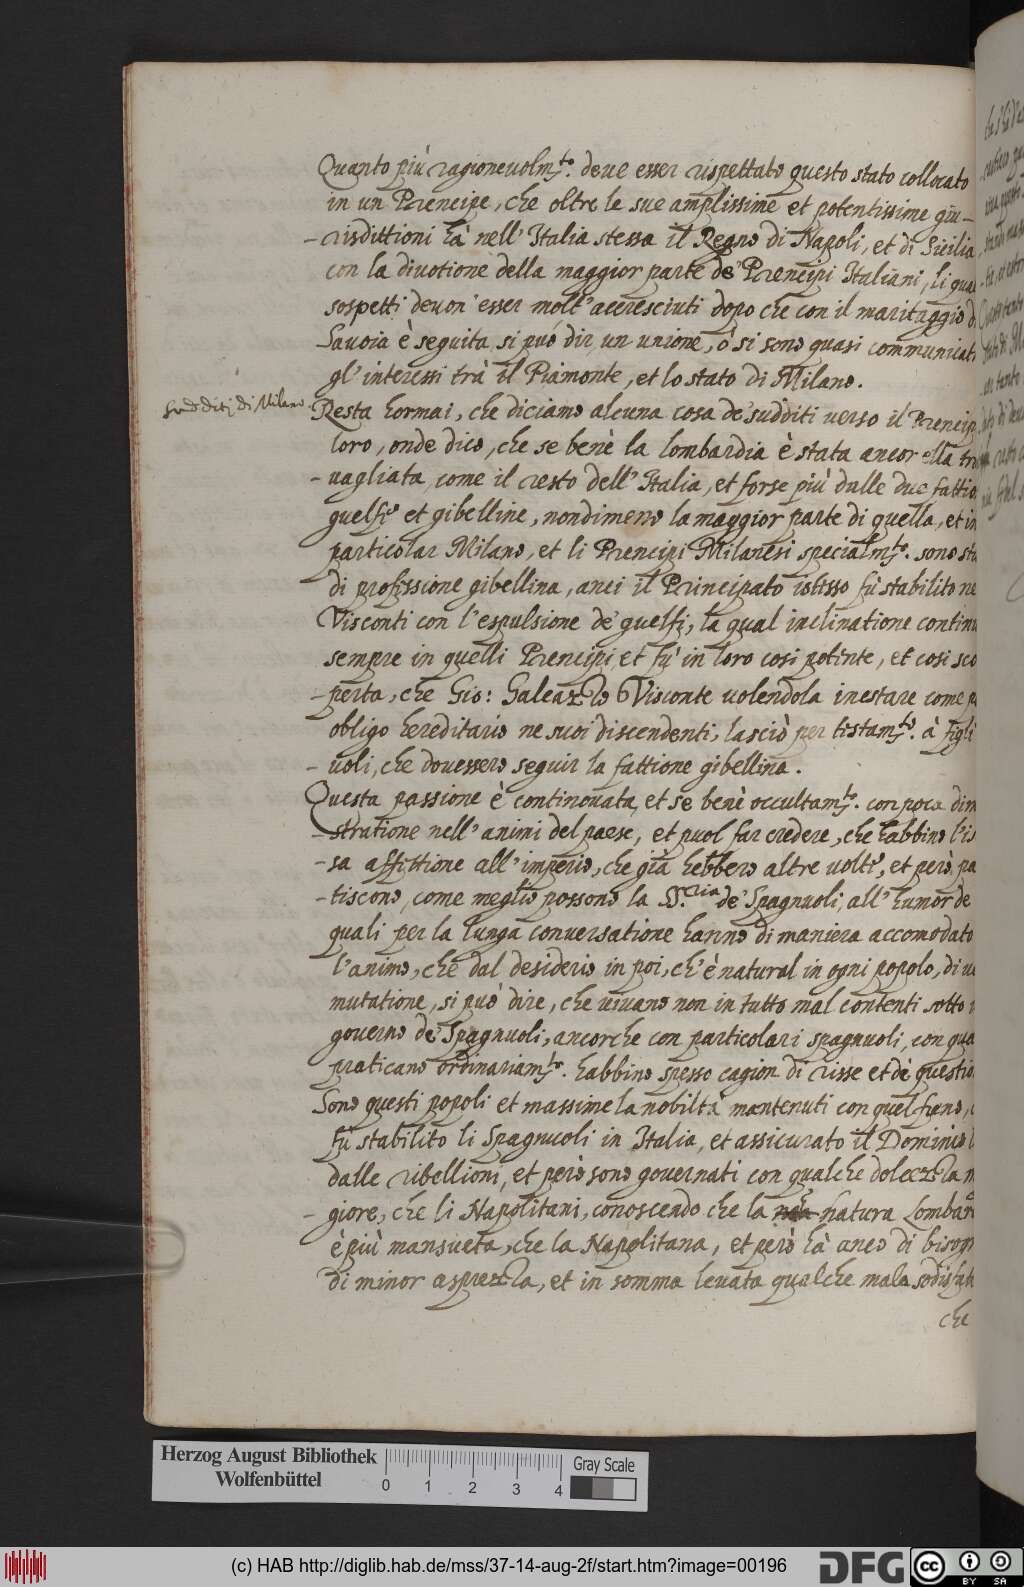 Quanto più ragionevolm.te deve esser rispettato questo stato collocato
in un Prencipe, che oltre le sue amplissime et potentissime giu-
-risdittioni hà nell'Italia stessa il Regno di Napoli, et di Sicilia
con la divotione della maggior parte de' Prencipi Italiani, li qua
sospetti devon' esser molt' accresciuti dopo che con il maritaggio d
Savoia è seguita, si può dir, un unione, ò si sono quasi communicat
gl'interessi trà il Piamonte, et lo stato di Milano.
Sudditj di Milano
Resta hormai, che diciamo alcuna cosa de' sudditi verso il Prencip
loro, onde dico, che se benè la lombardia è stata ancor ella tra
-vagliata, come il resto dell'Italia, et forse più dalle due fattio
guelfe et gibelline, nondimeno la maggior parte di quella, et in
particolar Milano, et li Prencipi Milanesi specialm.te sono sta
di professione gibellina, anci il Principato istesso fù stabilito ne
Visconti con l'espulsione de' guelfi, la qual inclinatione continu
sempre in quelli Prencipi, et fù in loro cosi potente, et cosi sco
-perta, che Gio: Galeazzo Visconte volendola inestare come p
obligo hereditario ne suoi discendenti, lasciò per testam.to à figli
-voli, che dovessero seguir la fattione gibellina.
Questa passione è continovata, et se benè occultam.te con poca dim
-stratione nell'animi del paese, et puol far credere, che habbino l'is
-sa affettione all'imperio, che già hebbero altre volte, et però pa
-tiscono, come meglio possono la S.ria de' Spagnuoli, all'humor de
quali per la lunga conversatione hanno di maniera accomodato
l'animo, che dal desiderio in poi, ch'è natural in ogni popolo, di ve
mutatione, si può dire, che vivano non in tutto mal contenti sotto i
governo de' Spagnuoli, ancorche con particolari spagnuoli, con qua
praticano ordinariam.te habbino spesso cagion di risse et de questio
Sono questi popoli et massime la nobiltà mantenuti con quel freno,
fù stabilito li Spagnuoli in Italia, et assicurato il Dominio l
dalle ribellioni, et però sono governati con qualche dolcezza m
-giore, che li Napolitani, conoscendo che la natura Lombar
è più mansueta, che la Napolitana, et però hà anco di bisogn
di minor asprezza, et in somma levata qualche mala sodisfat
che
Herzog August Bibliothek
Wolfenbüttel
0 1 2 3 4
Gray Scale
(c) HAB http://diglib.hab.de/mss/37-14-aug-2f/start.htm?image=00196
DFG
cc
BY SA